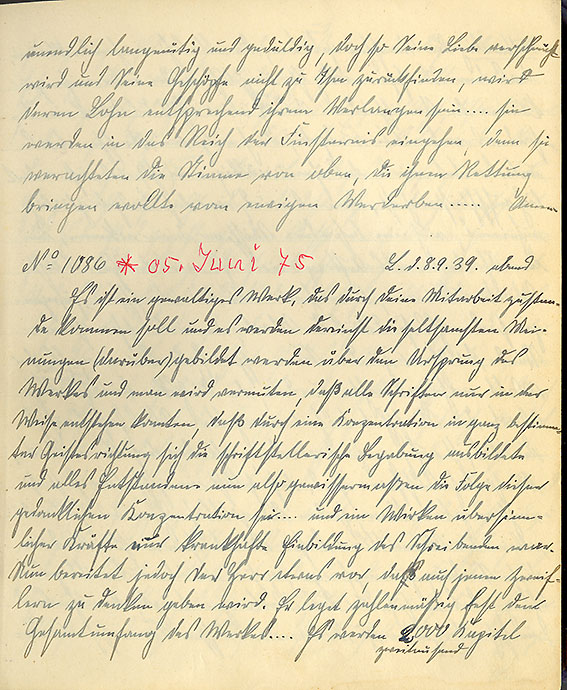 unendlich langmütig und geduldig, doch so Seine Liebe verschmäht
wird und Seine Geschöpfe nicht zu Ihm zurückfinden, wird
deren Lohn entsprechend ihrem Verlangen sein.... sie
werden in das Reich der Finsternis eingehen, denn sie
verachteten die Stimme von oben, die ihnen Rettung
bringen wollte vom ewigen Verderben..... Amen
No 1086 * 05. Juni 75 L. d. 8.9.39. abend
Es ist ein gewaltiges Werk, das durch deine Mitarbeit zustan-
de kommen soll und es werden dereinst die seltsamsten Mei-
nungen (darüber) gebildet werden über den Ursprung des
Werkes und man wird vermuten, daß alle Schriften nur in der
Weise entstehen konnten, daß durch eine Konzentration in ganz bestimm-
ter Geistesrichtung sich die schriftstellerische Begabung ausbildete
und alles Entstandene nun also gewissermaßen die Folge dieser
gedanklichen Konzentration sei.... und ein Wirken übersinn-
licher Kräfte nur krankhafte Einbildung des Schreibenden war.
Nun bereitet jedoch der Herr etwas vor daß auch jenen Zweif-
lern zu denken geben wird. Er leget zahlenmäßig fest den
Gesamtumfang des Werkes.... Es werden 2,000 Kapitel
zweitausend